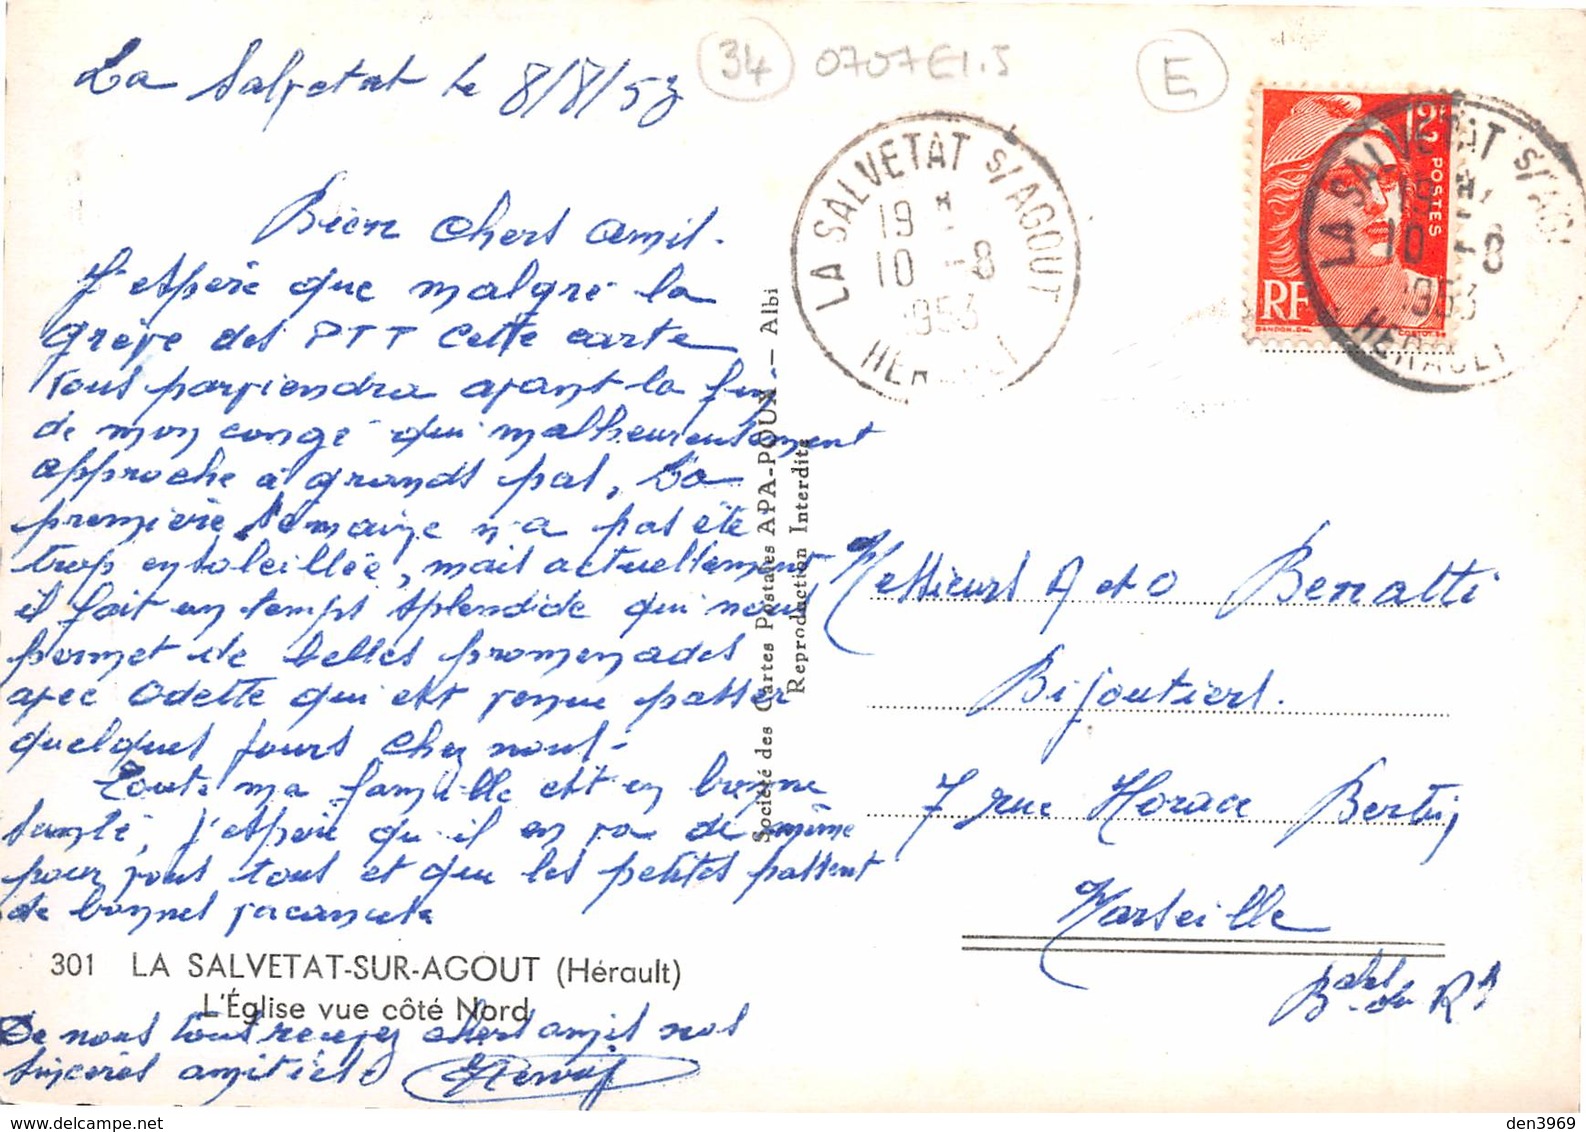 34 0707E1.5 E
La Salvetat le 8/8/53
Bien chers amis.
J'espère que malgré la
grève des PTT cette carte
vous parviendra avant la fin
de mon congé qui malheureusement
approche à grands pas, La
première semaine n'a pas été
trop ensoleillée, mais actuellement
il fait un temps splendide qui nous
permet de belles promenades
avec Odette qui est venue passer
quelques jours chez nous.
Toute ma famille est en bonne
santé, j'espère qu'il en va de même
pour vous tous et que les petites passent
de bonnes vacances
301 LA SALVETAT-SUR-AGOUT (Hérault)
L'Église vue côté Nord
De nous tous recevez chers amis nos
sincères amitiés
Société des Cartes Postales APA-POUX — Albi
Reproduction Interdite
LA SALVETAT S/ AGOUT
19 H
10 -8
1953
HERAULT
12F POSTES
RF
LA SALVETAT S/ AGOUT
19 H
10 -8
1953
HERAULT
Messieurs A et O Benatti
Bijoutiers.
7 rue Horace Bertin
Marseille
B. du R.
den3969